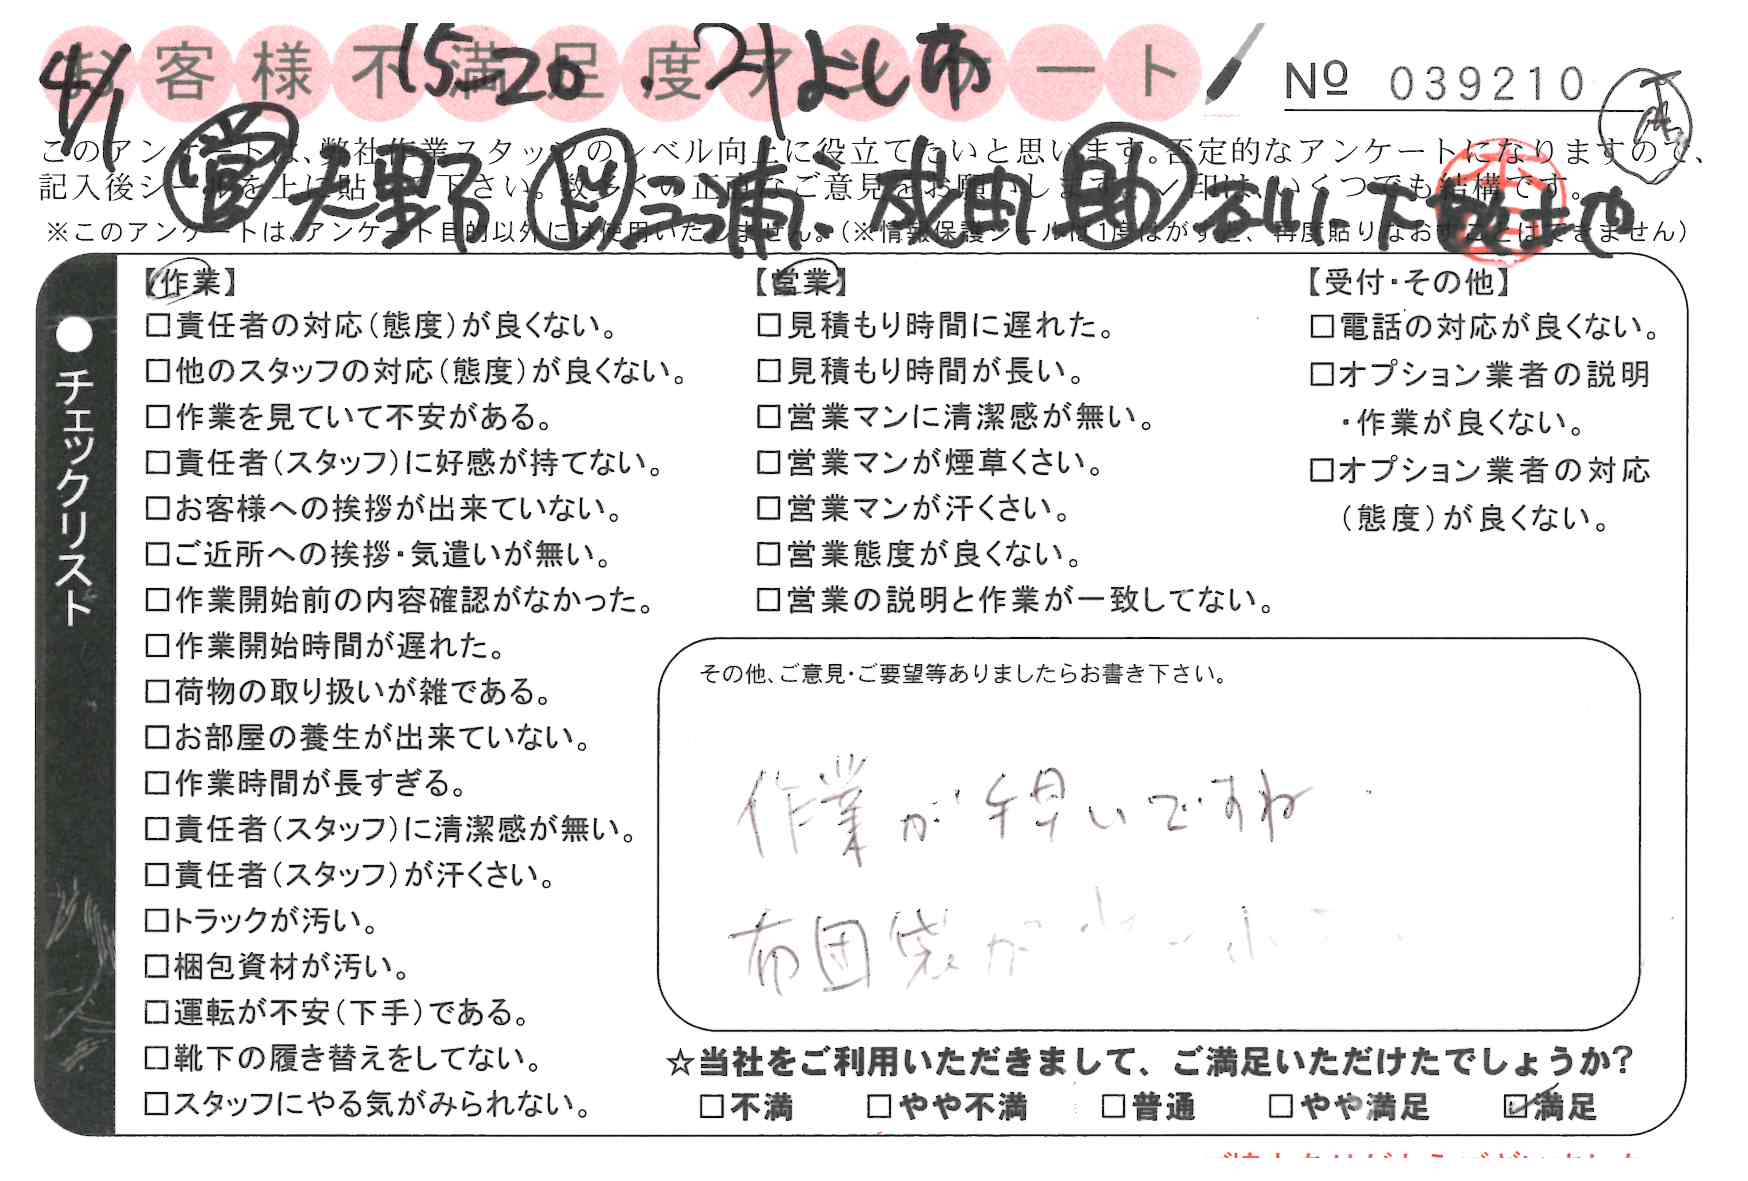 お客様不満足度アンケート
4/1 15-20. みよし市
№ 039210
このアンケートは、弊社作業スタッフのレベル向上に役立てたいと思います。否定的なアンケートになりますので、
記入後シールを上に貼って下さい。数多くの正直なご意見をお願いします。✓印は、いくつでも結構です。
営 天野 三浦、成田 助 谷山、下
※このアンケートは、アンケート目的以外には使用いたしません。(※情報保護シールは1度はがすと、再度貼りなおすことはできません)
●チェックリスト
【作業】
□責任者の対応(態度)が良くない。
□他のスタッフの対応(態度)が良くない。
□作業を見ていて不安がある。
□責任者(スタッフ)に好感が持てない。
□お客様への挨拶が出来ていない。
□ご近所への挨拶・気遣いが無い。
□作業開始前の内容確認がなかった。
□作業開始時間が遅れた。
□荷物の取り扱いが雑である。
□お部屋の養生が出来ていない。
□作業時間が長すぎる。
□責任者(スタッフ)に清潔感が無い。
□責任者(スタッフ)が汗くさい。
□トラックが汚い。
□梱包資材が汚い。
□運転が不安(下手)である。
□靴下の履き替えをしてない。
□スタッフにやる気がみられない。
【営業】
□見積もり時間に遅れた。
□見積もり時間が長い。
□営業マンに清潔感が無い。
□営業マンが煙草くさい。
□営業マンが汗くさい。
□営業態度が良くない。
□営業の説明と作業が一致してない。
【受付・その他】
□電話の対応が良くない。
□オプション業者の説明
・作業が良くない。
□オプション業者の対応
(態度)が良くない。
その他、ご意見・ご要望等ありましたらお書き下さい。
作業が早いですね
布団袋が
☆当社をご利用いただきまして、ご満足いただけたでしょうか?
□不満 □やや不満 □普通 □やや満足 ☑満足